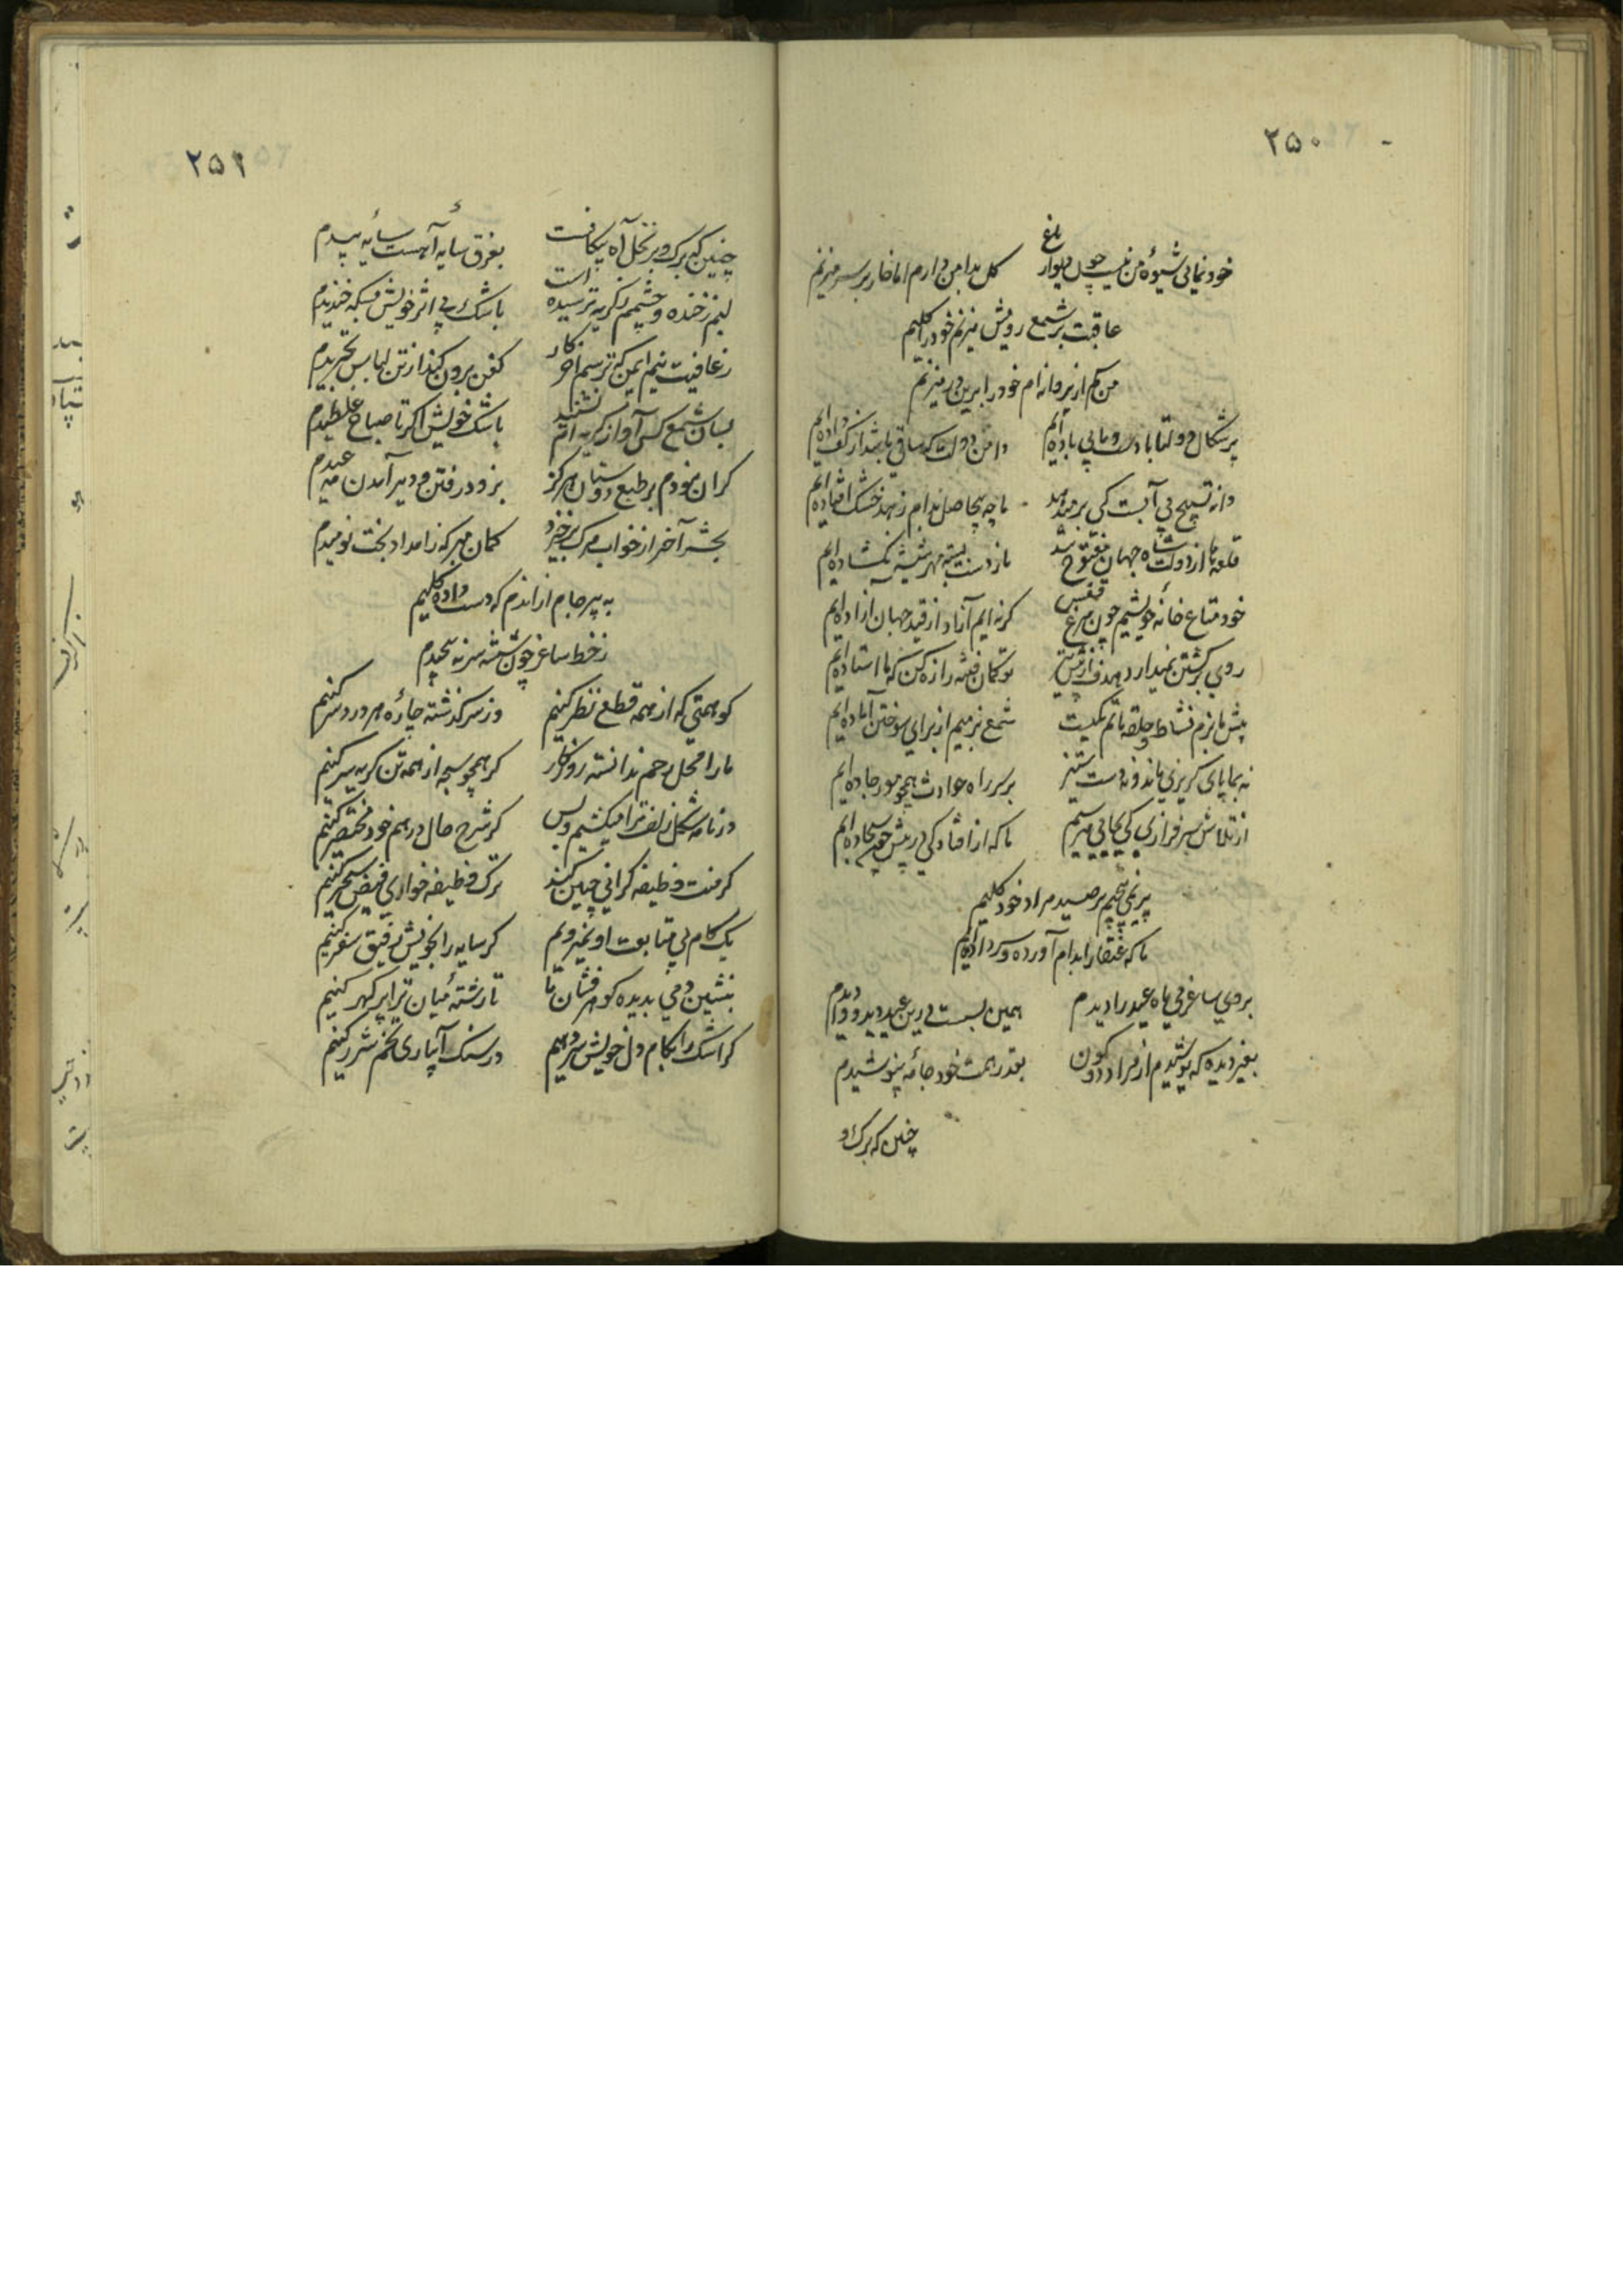 ۲۵۰
خودنمائی شیوهٔ من نیست چون دیوار باغ
کل بدامن دارم اما خار بر سر میزنم
عاقبت بر شمع رویش میزنم خود را کلیم
من کم از پروانه‌ام خود را برین در میزنم
پرشکال دولتاباد است و ما بی باده ایم
دامن دولت که ساقی باشد از کف داده ایم
دانه تسبیح بی آبست کی بر میدهد
ما چه بیحاصل بدام زهد خشک افتاده ایم
قلعه ها از دولت شاه جهان مفتوح شد
ما ز دست بسته مهر شیشهٔ نکشاده ایم
خود متاع خانهٔ خویشیم چون مرغ قفس
کرنه ایم آزاد از قید جهان آزاده ایم
روی برکشتن نمیدارد هدف از پیش تیر
تو کمان فتنه را زه کن که ما استاده ایم
پیش ما بزم نشاط و حلقه ماتم یکیست
شمع بزمیم از برای سوختن آماده ایم
نه بما پای کریزی ماند و نه دست ستیز
بر سر راه حوادث همچو مور جاده ایم
از تلاش سرفرازی کی بجائی میرسیم
ما که از افتادکی در پیش چون سجاده ایم
بر نمی پیچیم سر صید مراد خود کلیم
ما که عنقا را بدام آورده و سر داده ایم
بروی ساغر می ماه عید را دیدم
همین بسست درین عید دید و وادیدم
بغیر دیده که پوشیدم از مراد دو کون
بقدر همت خود جامهٔ نپوشیدم
چنین که برک و
۲۵۱
چنین که برک و بر نخل آه پیکانست
بفرق سایه آهست سایهٔ بیدم
لبم ز خنده و چشمم ز کریه ترسیده است
باشک بی اثر خویش بسکه خندیدم
ز عافیت نیم ایمن که ترسم آخر کار
کفن برون کند از تن لباس تجریدم
بسان شمع کس آواز کریه ام نشنید
باشک خویش اکر تا صباح غلطیدم
کران نبودم بر طبع دوستان هرکز
بزود رفتن و دیر آمدن مه عیدم
بحشر آخر از خواب مرک برخیزد
کمان مبر که ز امداد بخت نومیدم
به پیر جام از آندم که دست داده کلیم
ز خط ساغر چون شیشه سر نه پیچیدم
کو همتی که از همه قطع نظر کنیم
وز سر کذشته چارهٔ هر درد سر کنیم
ما را محل رحم ندانسته روزکار
کر همچو سبحه از همه تن کریه سر کنیم
در نامه شکل زلف ترا میکشیم و بس
کر شرح حال درهم خود مختصر کنیم
کر منت وظیفه کرانی چنین کند
ترک وظیفه خواری فیض سحر کنیم
یک کام بی متابعت او نمیرویم
کر سایه را بخویش رفیق سفر کنیم
بنشین دمی بدیده کوهر فشان ما
تا رشتهٔ میان ترا پر کهر کنیم
کر اشک را بکام دل خویش سر دهیم
در سنک آبیاری تخم شرر کنیم